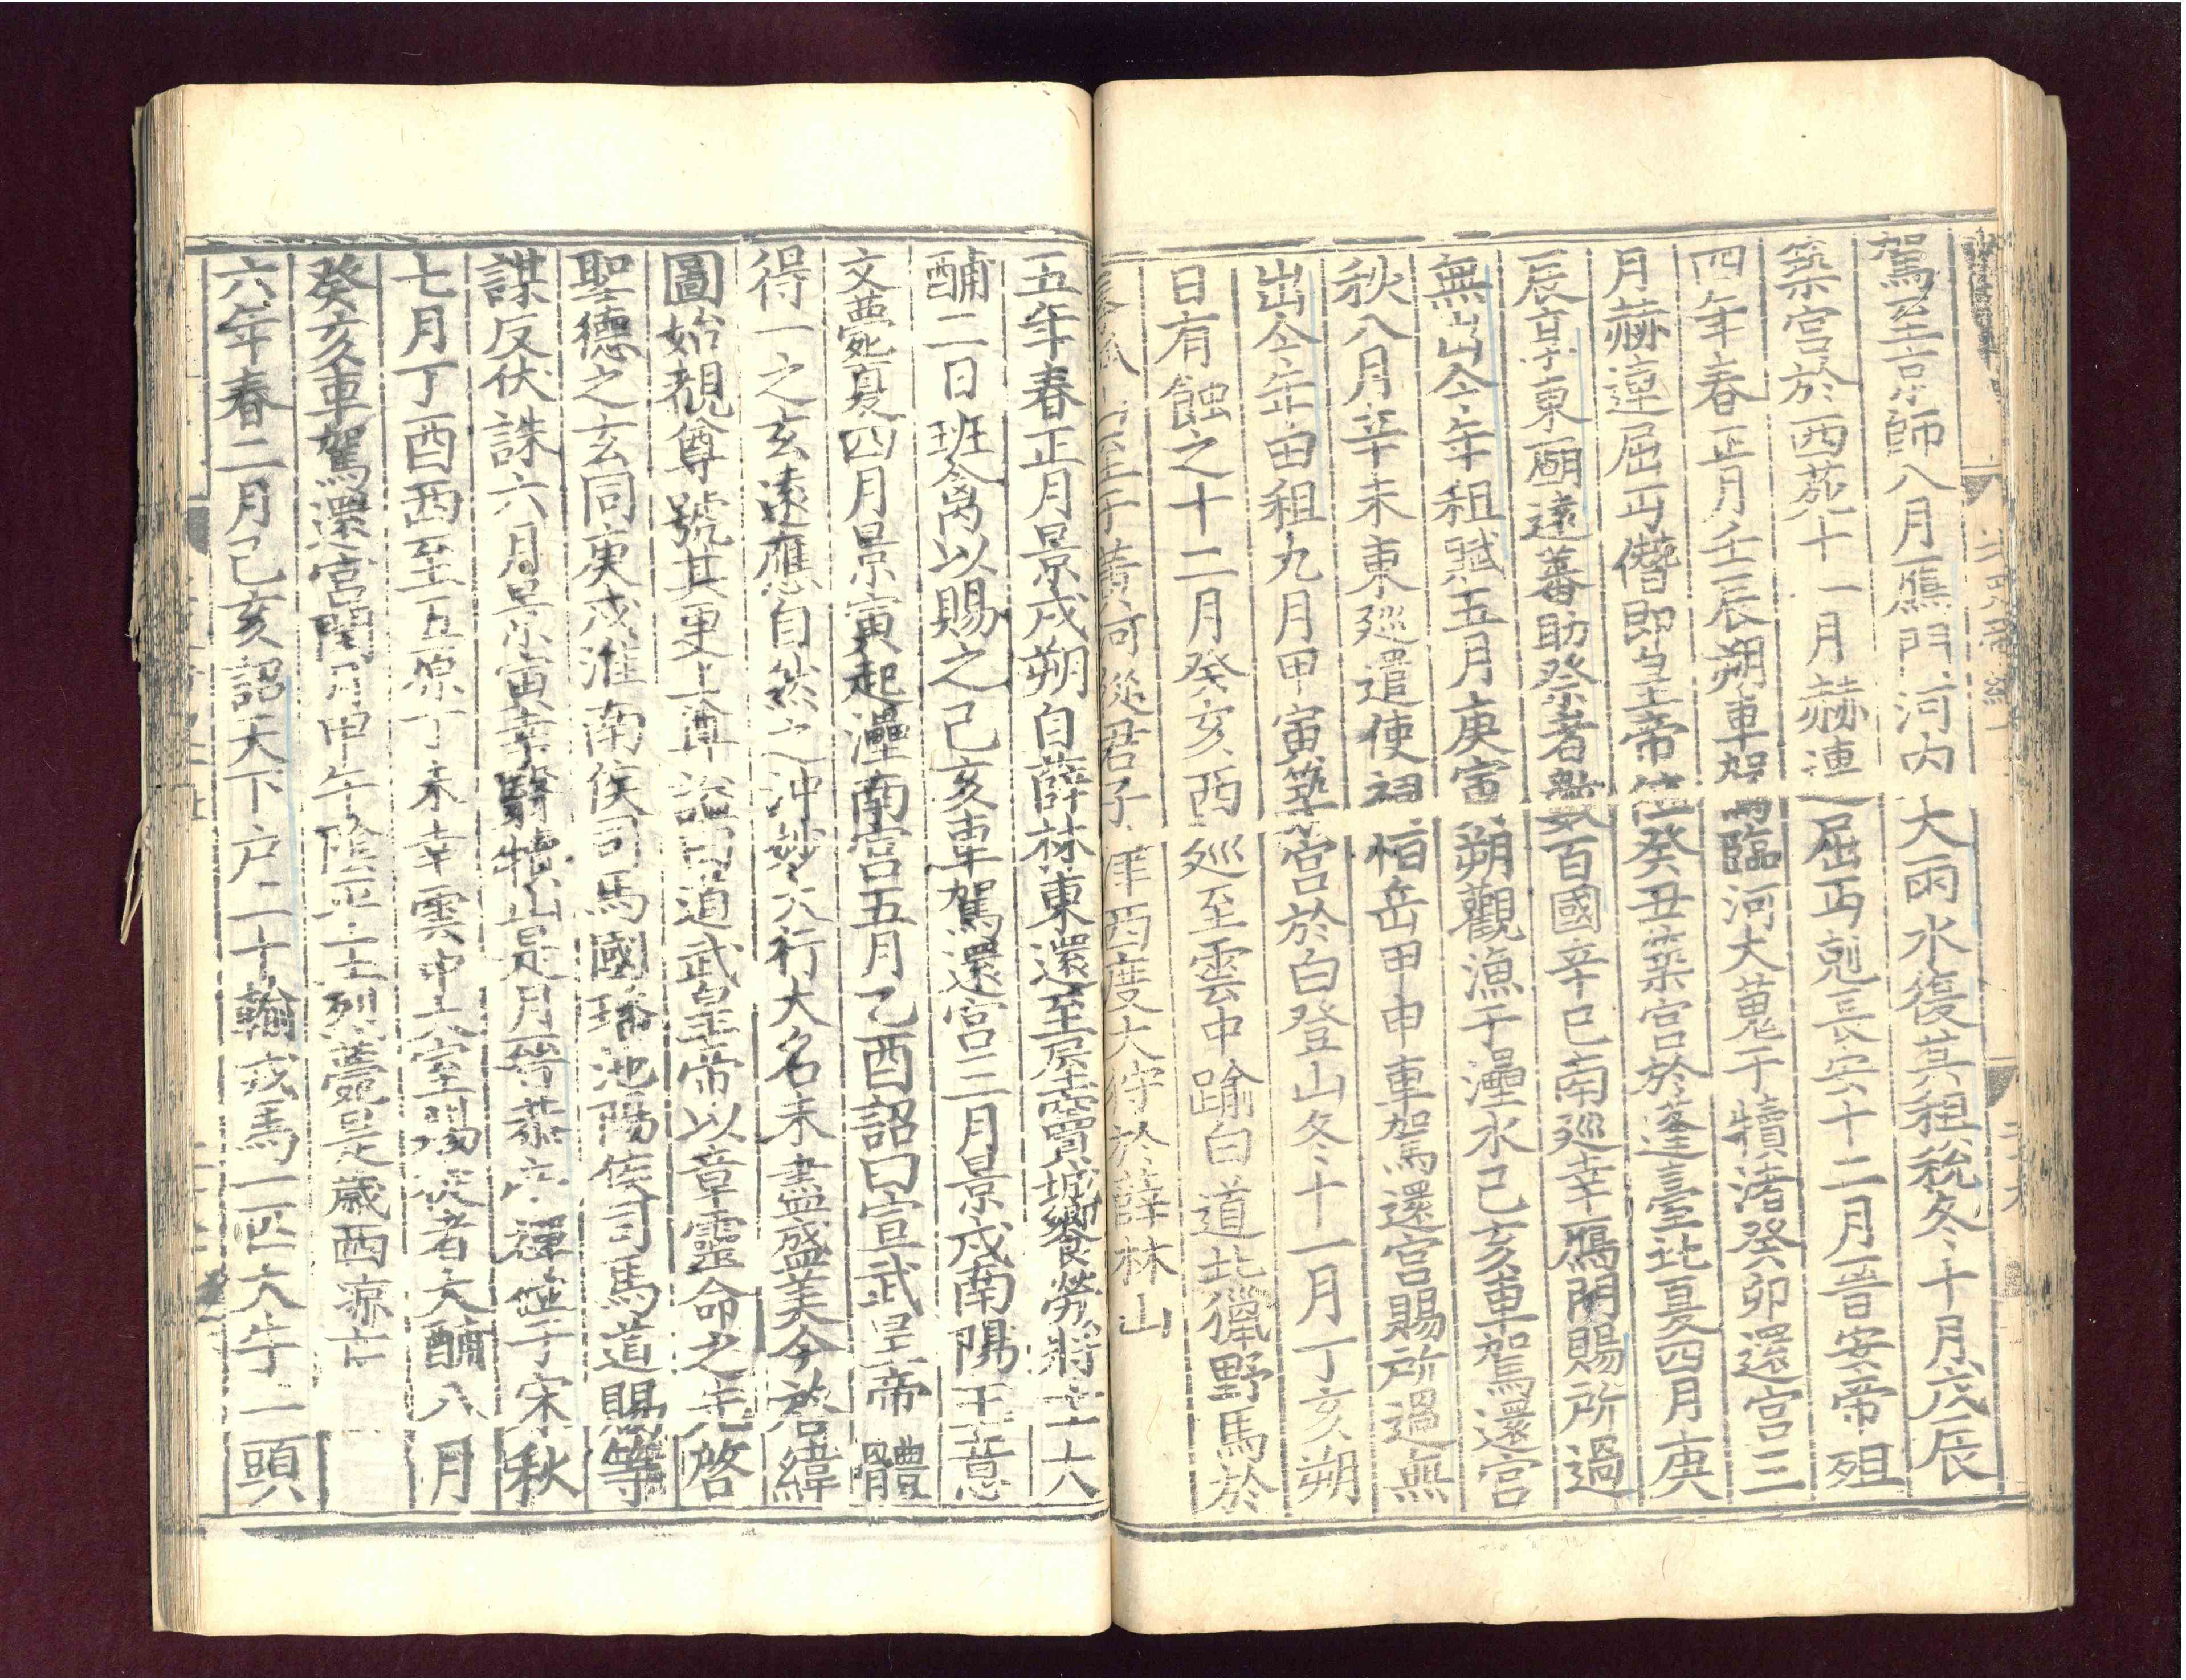 駕至京師八月鴈門河內大雨水復其租稅冬十月戊辰
築宮於西苑十一月赫連屈丐剋長安十二月晉安帝殂
四年春正月壬辰朔車駕臨河大蒐于犢渚癸卯還宮三
月赫連屈丐僭即皇帝位癸丑築宮於蓬臺北夏四月庚
辰享東廟遠蕃助祭者數百國辛巳南巡幸鴈門賜所過
無出今年租賦五月庚寅朔觀漁于灅水己亥車駕還宮
秋八月辛未東巡遣使祠恒岳甲申車駕還宮賜所過無
出今年田租九月甲寅築宮於白登山冬十一月丁亥朔
日有蝕之十二月癸亥西巡至雲中踰白道北獵野馬於
至于黃河從君子津西度大狩於薛林山
五年春正月景戌朔自薛林東還至屋竇城饗勞將士大
酺二日班禽以賜之己亥車駕還宮三月景戌南陽王意
文薨夏四月景寅起灅南宮五月乙酉詔曰宣武皇帝體
得一之玄遠應自然之沖妙大行大名未盡盛美今啓緯
圖始覩尊號其更上尊謚曰道武皇帝以章靈命之先啓
聖德之玄同庚戌淮南侯司馬國璠池陽侯司馬道賜等
謀反伏誅六月景寅幸翳犢山是月晉恭帝禪位于宋秋
七月丁酉西至五原丁未幸雲中大室賜從者大酺八月
癸亥車駕還宮閏月甲午陰平王烈薨是歲西涼亡
六年春二月己亥詔天下戶二十輸戎馬一匹大牛一頭